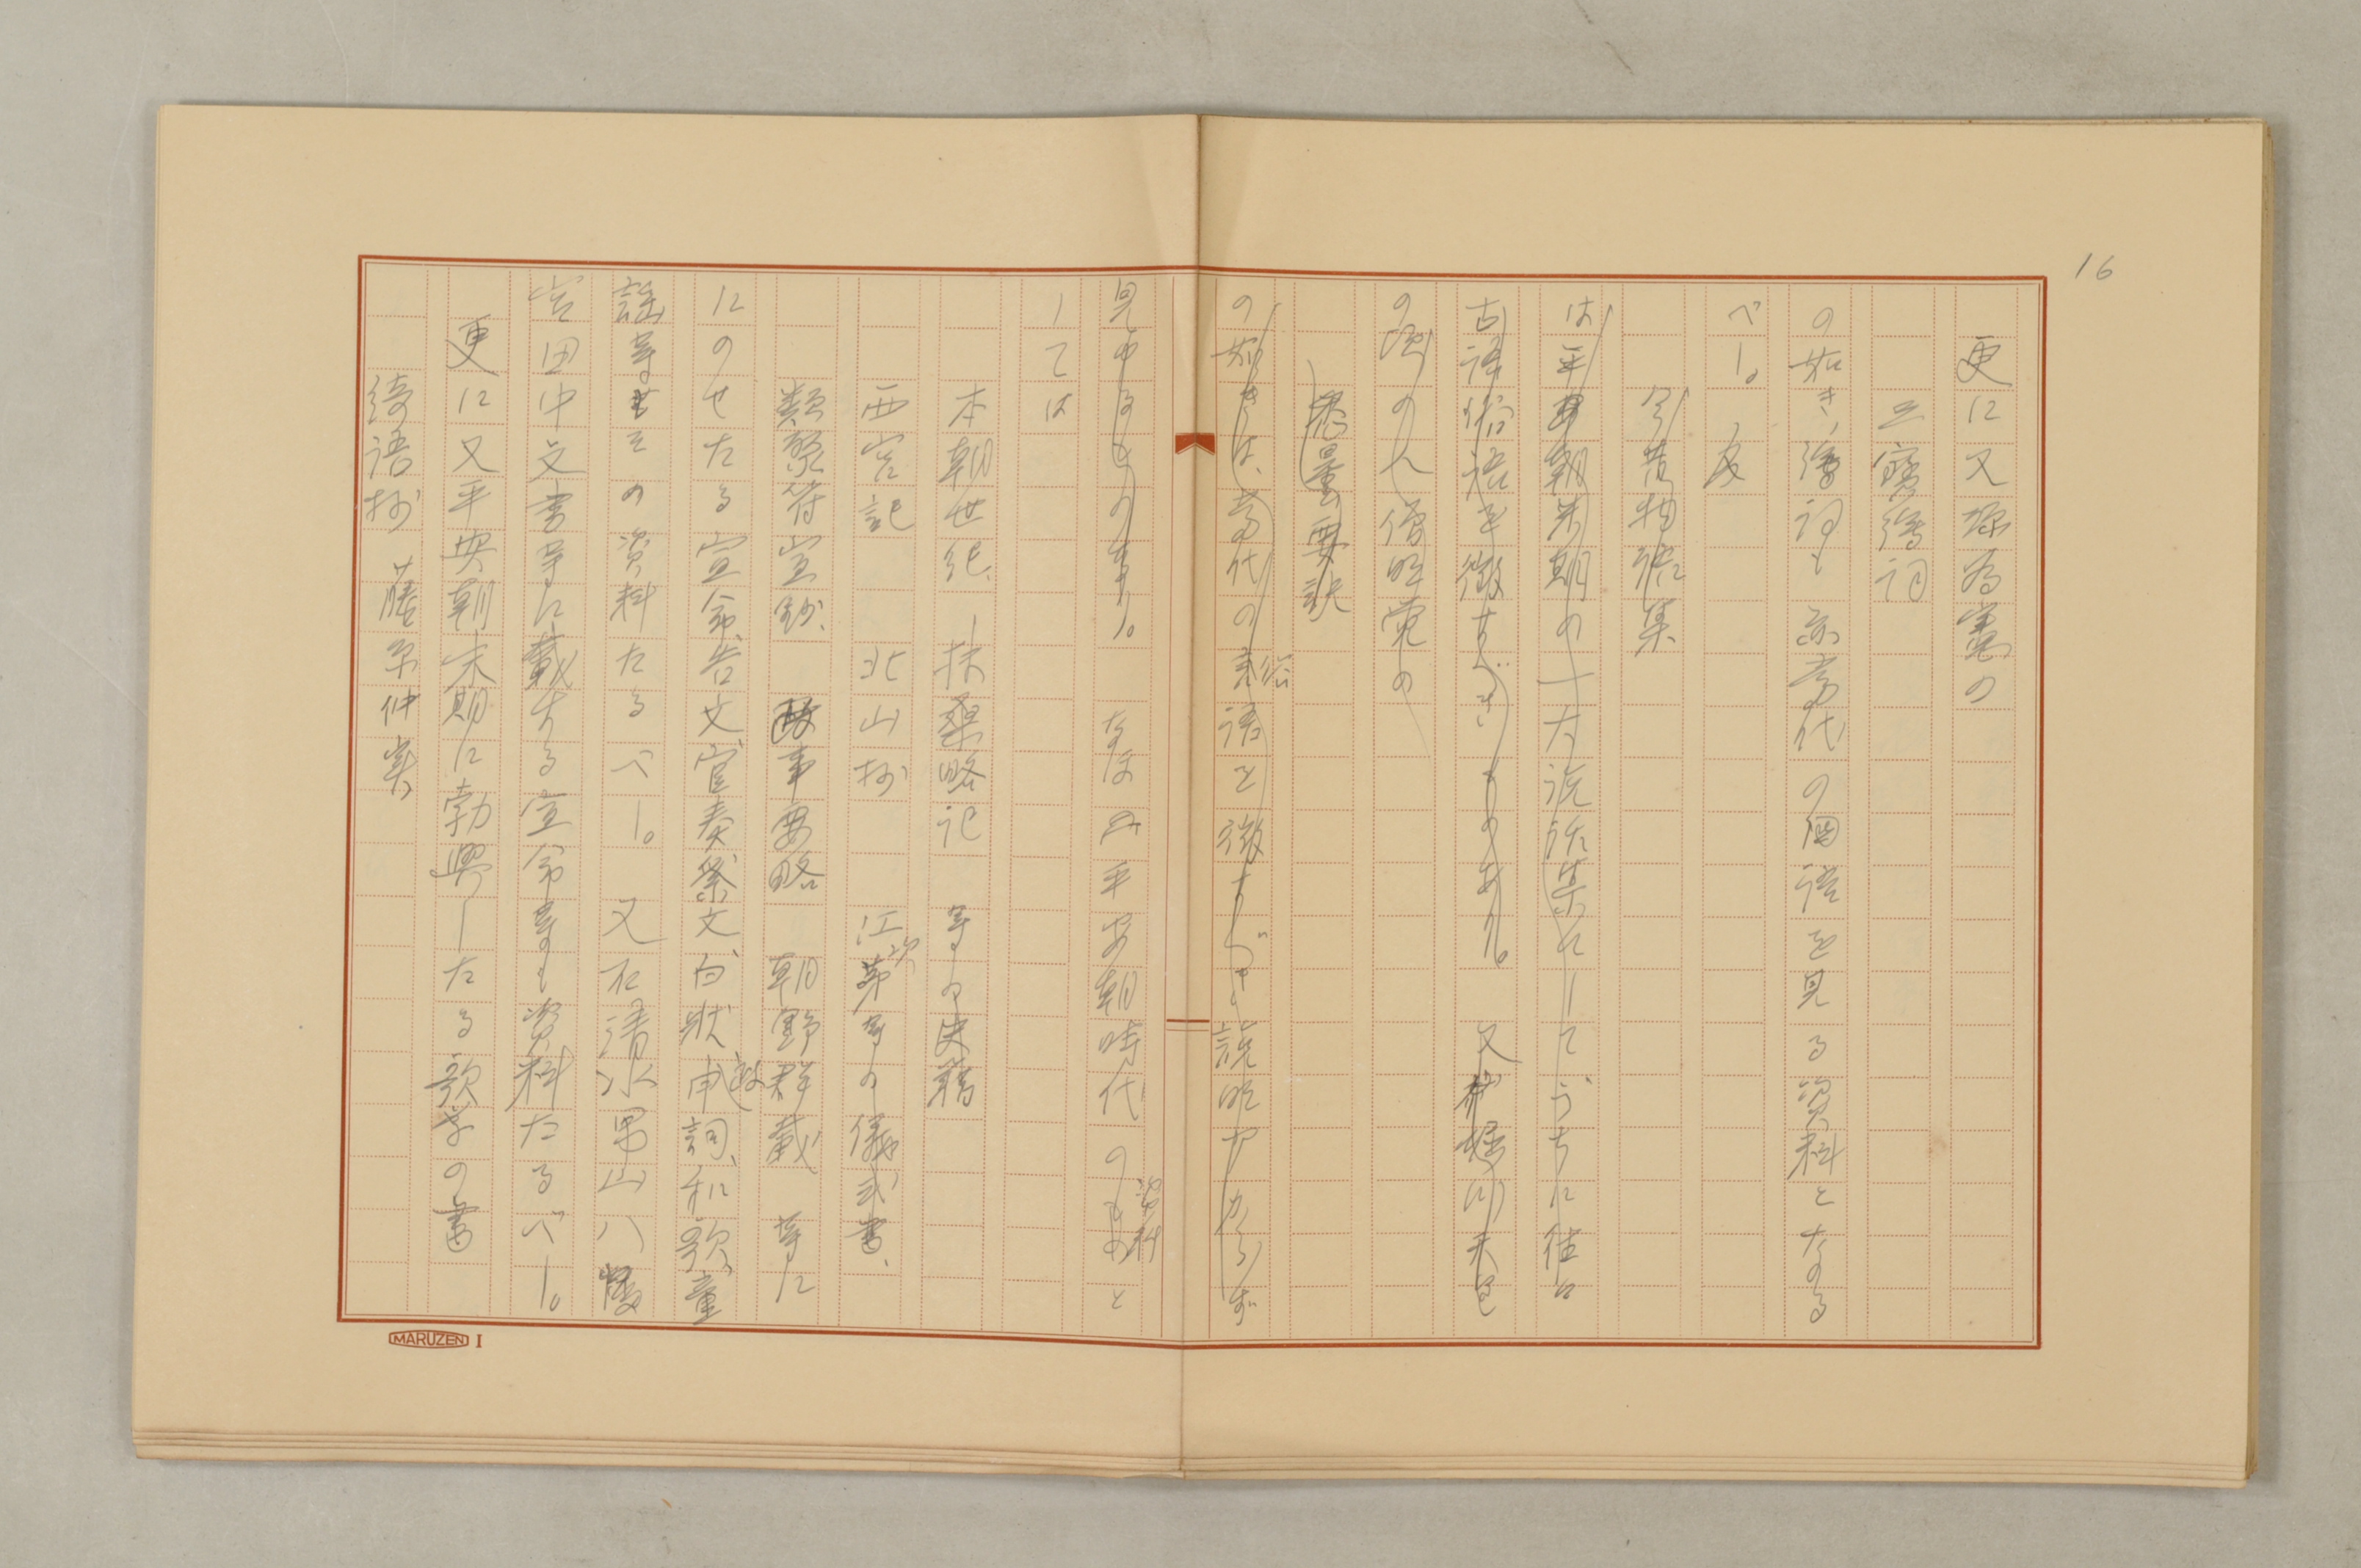 16
更に又源為憲の
三寳繪詞
の如き、繪詞も亦当代の国語を見る資料となる
べし。又
今昔物語集
は平安朝末期の一大説話集にしてうちに往々
古語俗語を徴すべきものあり。又堀川天皇
の頃の人僧明覚の
悉曇要訣
の如きは、当代の俗語を徴すべき説明少からず
見ゆるもの多し。なほ平安朝時代の資料と
しては
本朝世紀、扶桑略記 等の史籍
西宮記 北山抄 江次第等の儀式書、
類聚符宣鈔、政事要略 朝野群載 等に
にのせたる宣命、告文、官奏、祭文、白状、申詞、和歌、童
謡等その資料たるべし。又石清水男山八幡
宮田中文書等に載する宣命等も資料たるべし。
更に又平安朝末期に勃興したる歌学の書
綺語抄 藤原仲実
MARUZEN I